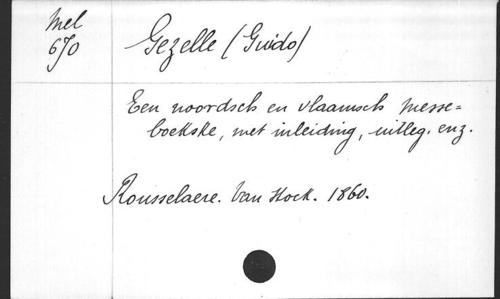 Mel
670
Gezelle (Guido)
Een noordsch en vlaamsch messe=
boekske, met inleiding, uitleg. enz.
Rousselaere. Van Hock. 1860.